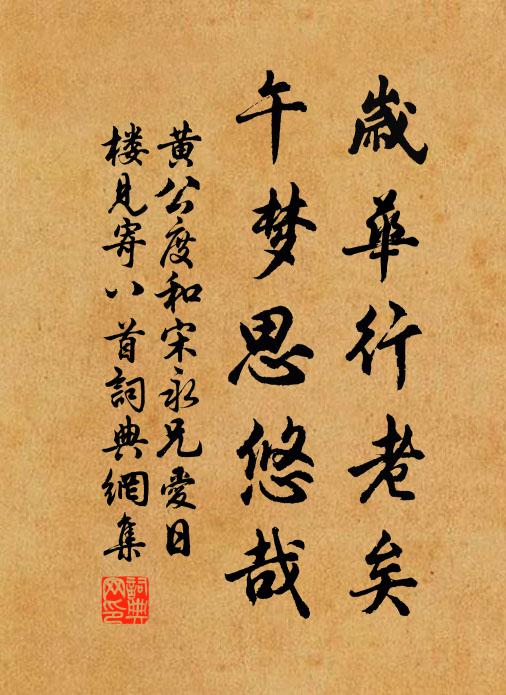 歲華行老矣
午梦思悠哉
黄公度和宋永兄愛日
楼見寄八首詞典網集
詞典網印